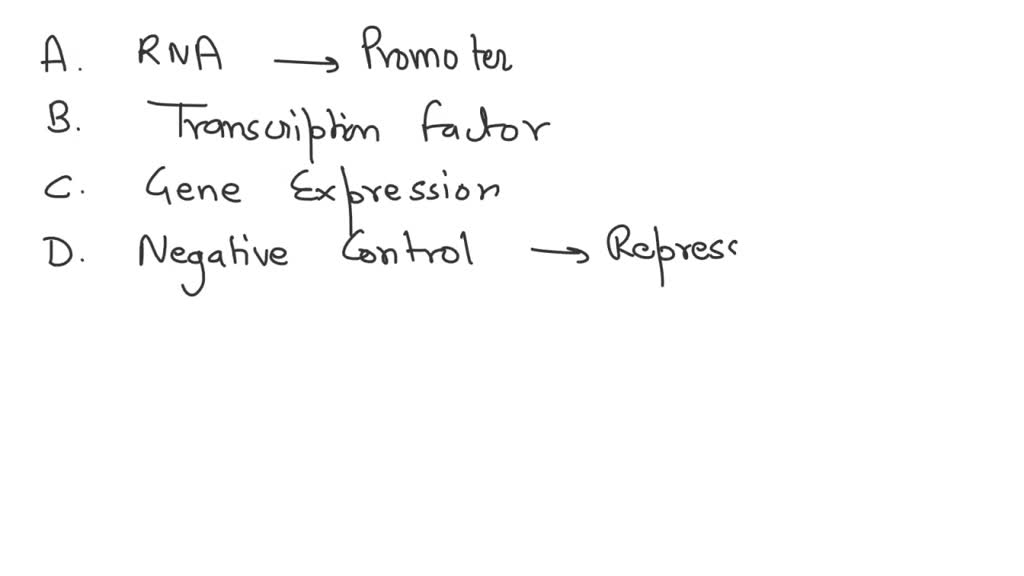 A. RNA → Promoter
B. Transcription factor
C. Gene Expression
D. Negative Control → Repress